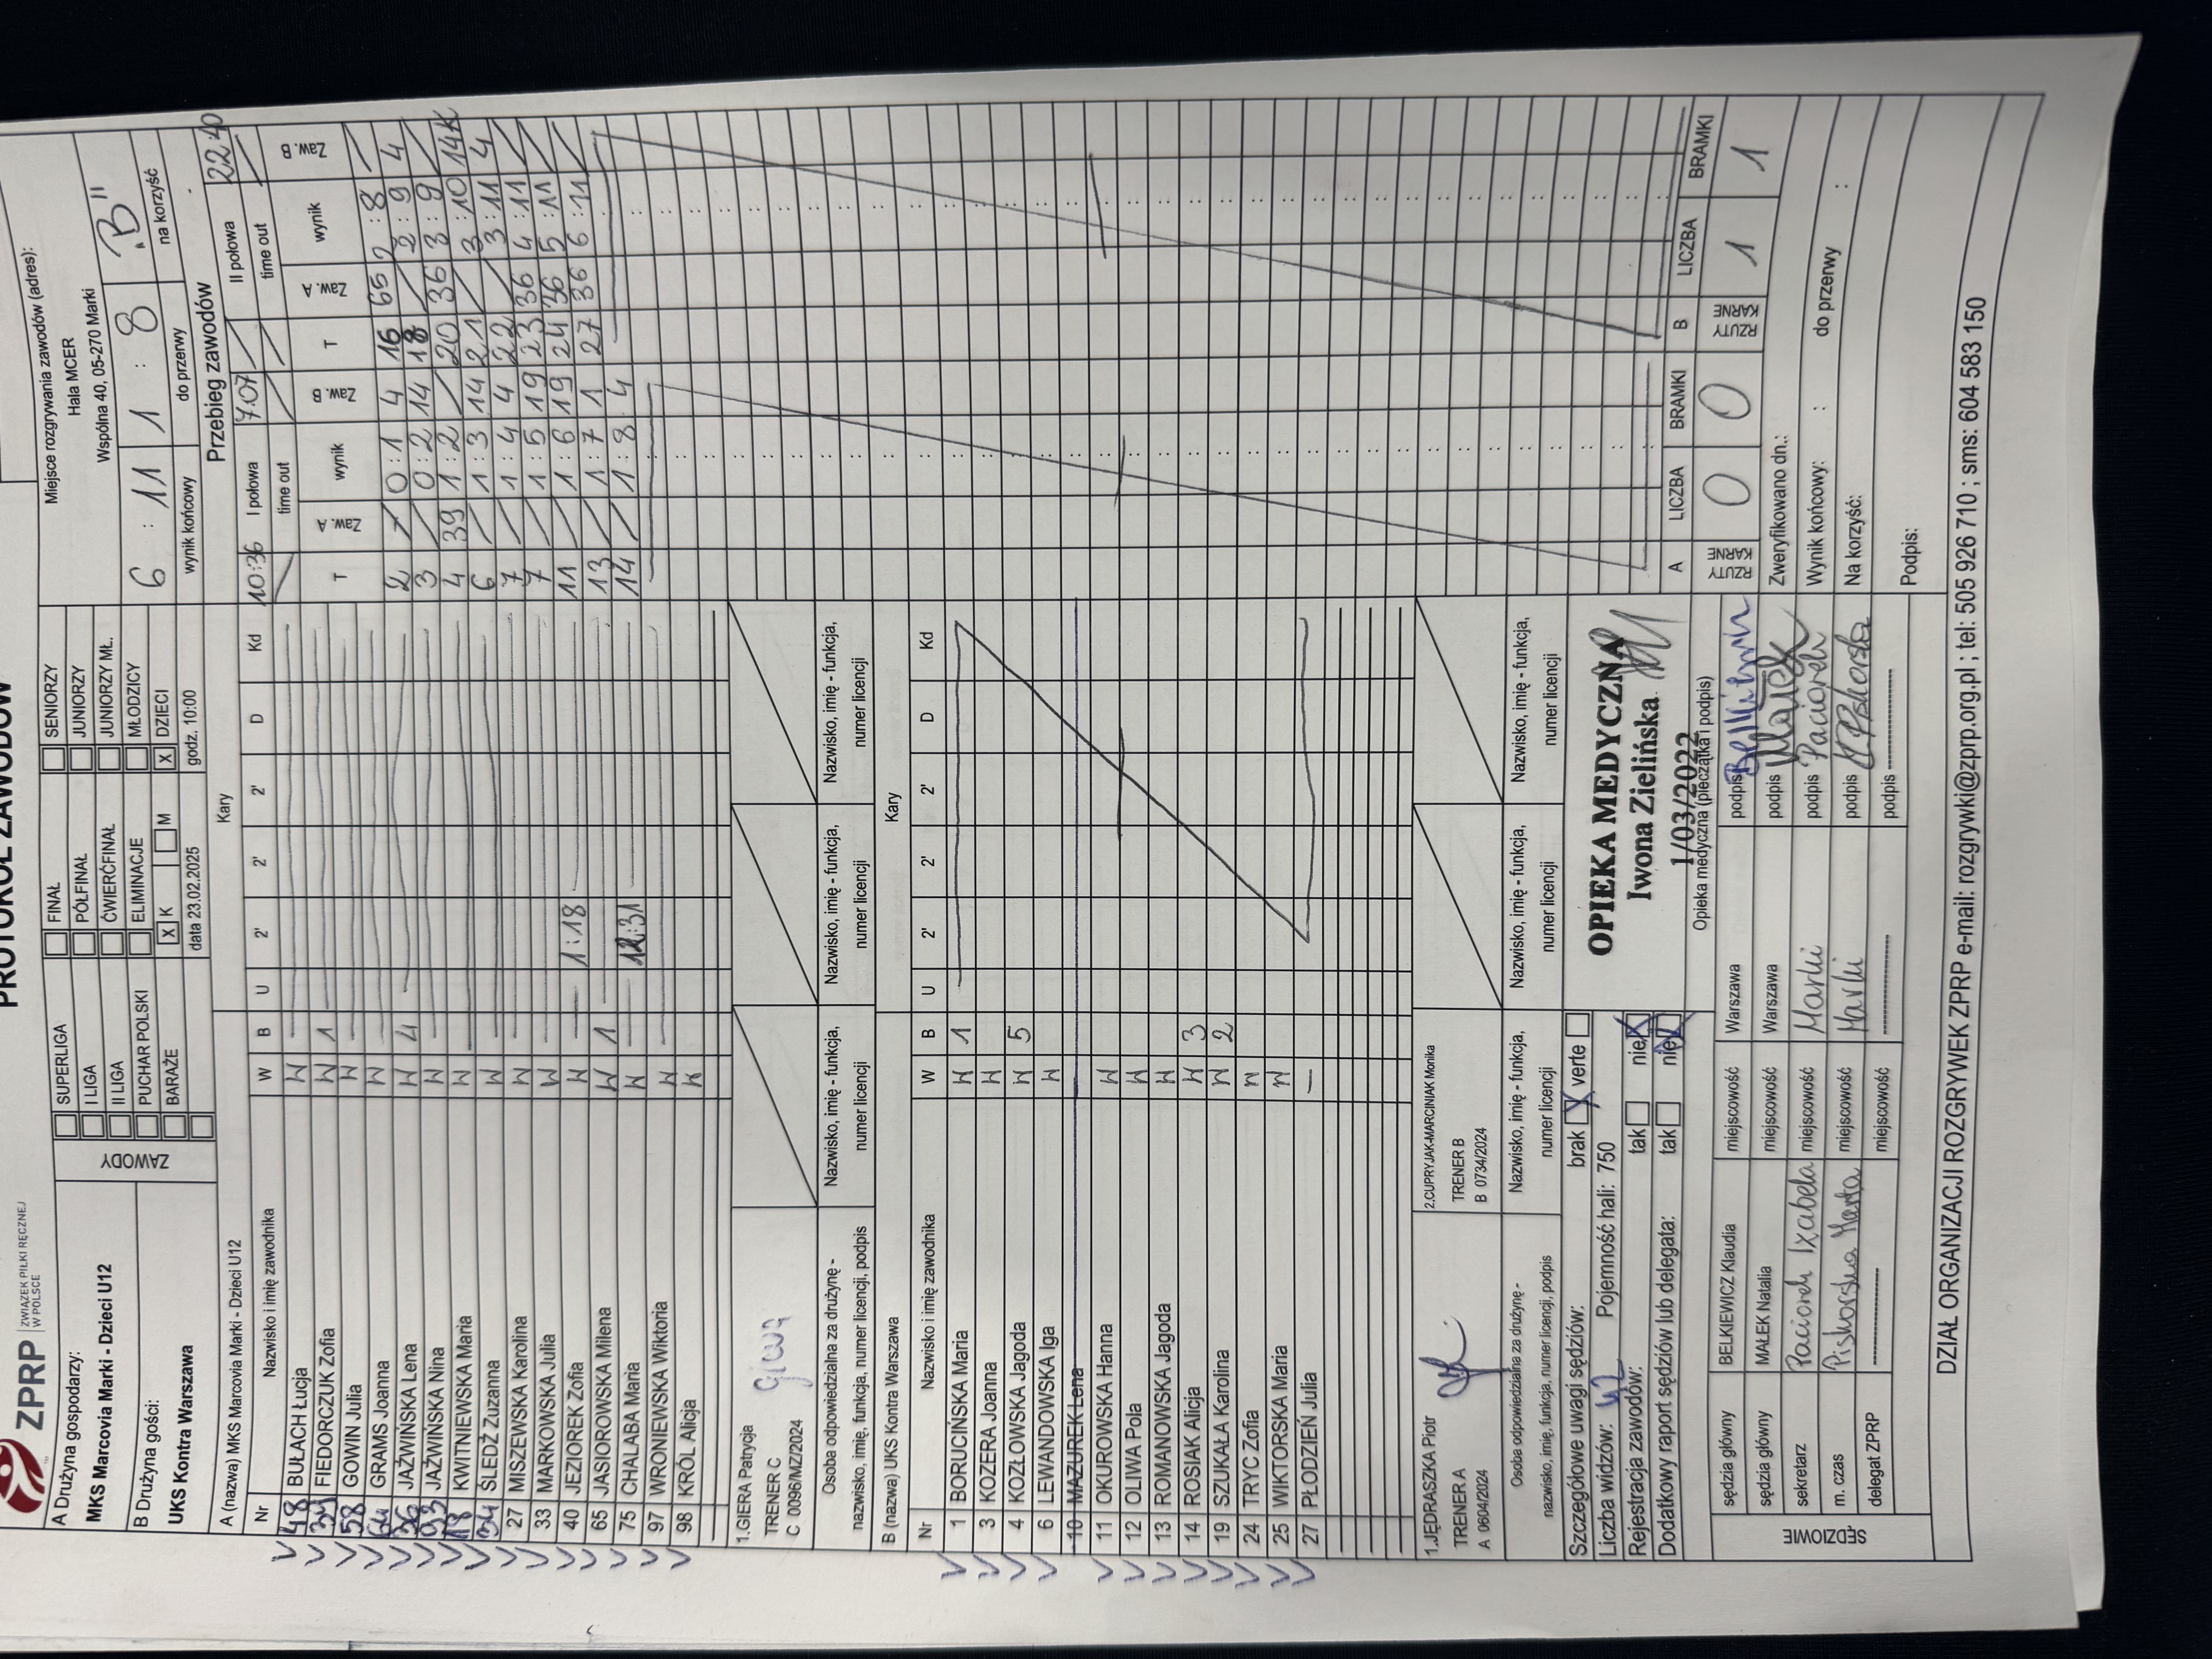 PROTOKÓŁ ZAWODÓW
ZPRP
ZWIĄZEK PIŁKI RĘCZNEJ
W POLSCE
A Drużyna gospodarzy:
MKS Marcovia Marki - Dzieci U12
B Drużyna gości:
UKS Kontra Warszawa
ZAWODY
SUPERLIGA
I LIGA
II LIGA
PUCHAR POLSKI
BARAŻE
FINAŁ
PÓŁFINAŁ
ĆWIERĆFINAŁ
ELIMINACJE
X K M
data 23.02.2025
SENIORZY
JUNIORZY
JUNIORZY MŁ.
MŁODZICY
X DZIECI
godz. 10:00
Miejsce rozgrywania zawodów (adres):
Hala MCER
Wspólna 40, 05-270 Marki
6 : 11 1 : 8 "B"
wynik końcowy do przerwy na korzyść
A (nazwa) MKS Marcovia Marki - Dzieci U12 Kary
Nr Nazwisko i imię zawodnika W B U 2' 2' 2' D Kd
48 BUŁACH Łucja W
39 FIEDORCZUK Zofia W 1
58 GOWIN Julia W
64 GRAMS Joanna W
36 JAŹWIŃSKA Lena W 4
93 JAŹWIŃSKA Nina W
18 KWITNIEWSKA Maria W
34 ŚLEDŹ Zuzanna W
27 MISZEWSKA Karolina W
33 MARKOWSKA Julia W
40 JEZIOREK Zofia W 1:18
65 JASIOROWSKA Milena W 1
75 CHALABA Maria W 12:31
97 WRONIEWSKA Wiktoria W
98 KRÓL Alicja W
1.GIERA Patrycja
TRENER C
C 0096/MZ/2024
Giera
Osoba odpowiedzialna za drużynę -
nazwisko, imię, funkcja, numer licencji, podpis
Nazwisko, imię - funkcja,
numer licencji
Nazwisko, imię - funkcja,
numer licencji
Nazwisko, imię - funkcja,
numer licencji
B (nazwa) UKS Kontra Warszawa Kary
Nr Nazwisko i imię zawodnika W B U 2' 2' 2' D Kd
1 BORUCIŃSKA Maria W 1
3 KOZERA Joanna W
4 KOZŁOWSKA Jagoda W 5
6 LEWANDOWSKA Iga W
10 MAZUREK Lena
11 OKUROWSKA Hanna W
12 OLIWA Pola W
13 ROMANOWSKA Jagoda W
14 ROSIAK Alicja W 3
19 SZUKAŁA Karolina W 2
24 TRYC Zofia W
25 WIKTORSKA Maria W
27 PŁODZIEŃ Julia —
1.JĘDRASZKA Piotr
TRENER A
A 0604/2024
2.CUPRYJAK-MARCINIAK Monika
TRENER B
B 0734/2024
Osoba odpowiedzialna za drużynę -
nazwisko, imię, funkcja, numer licencji, podpis
Nazwisko, imię - funkcja,
numer licencji
Nazwisko, imię - funkcja,
numer licencji
Nazwisko, imię - funkcja,
numer licencji
Przebieg zawodów
10:36 I połowa 7.07 II połowa 22:40
time out time out
T Zaw. A wynik Zaw. B T Zaw. A wynik Zaw. B
2 / 0 : 1 4 16 65 2 : 8 /
3 / 0 : 2 14 18 / 2 : 9 4
4 39 1 : 2 / 20 36 3 : 9 /
6 / 1 : 3 14 21 / 3 : 10 14K
7 / 1 : 4 4 22 / 3 : 11 4
7 / 1 : 5 19 23 36 4 : 11 /
11 / 1 : 6 19 24 36 5 : 11 /
13 / 1 : 7 1 27 36 6 : 11 /
14 / 1 : 8 4
A LICZBA BRAMKI B LICZBA BRAMKI
RZUTY KARNE 0 0 RZUTY KARNE 1 1
Szczegółowe uwagi sędziów: brak X verte
Liczba widzów: 42 Pojemność hali: 750
Rejestracja zawodów: tak nie X
Dodatkowy raport sędziów lub delegata: tak nie X
OPIEKA MEDYCZNA
Iwona Zielińska
1/03/2022
Opieka medyczna (pieczątka i podpis)
Zweryfikowano dn.:
Wynik końcowy: : do przerwy :
Na korzyść:
Podpis:
SĘDZIOWIE
sędzia główny BELKIEWICZ Klaudia miejscowość Warszawa podpis Belkiewicz
sędzia główny MAŁEK Natalia miejscowość Warszawa podpis Małek
sekretarz Paciorek Izabela miejscowość Marki podpis Paciorek
m. czas Piskorska Marta miejscowość Marki podpis MPiskorska
delegat ZPRP miejscowość podpis
DZIAŁ ORGANIZACJI ROZGRYWEK ZPRP e-mail: rozgrywki@zprp.org.pl ; tel: 505 926 710 ; sms: 604 583 150